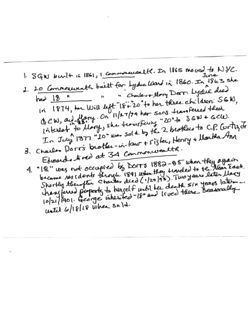 1. SGW built in 1861, 1 Commonwealth. In 1865 moved to NYC.
2. 20 Commonwealth built for Lydia Ward in 1860. In 1863 she
June
had 18 " " " Charles + Mary Dorr. Lydia died
in 1874, her Will left "18 + 20" to her three children SGW,
GCW, and Mary. On 11/27/74 her sons transferred their
interest to Mary, she transferring "20" to SGW + GCW.
In July 1877 "20" was sold by the 2 brothers to C.P. Curtis, Jr
3. Charles Dorr's brother-in-law + sister, Henry + Martha Ann
Edwards lived at 34 Commonwealth.
4. "18" was not occupied by Dorrs 1882-85 when they again
became residents through 1891 when they
Shortly thereafter Charles died (1/28/93). Two years later Mary
transferred property to herself until her death six years later
10/21/1901. George inherited "18" and lived there
until 6/18/18 when sold.